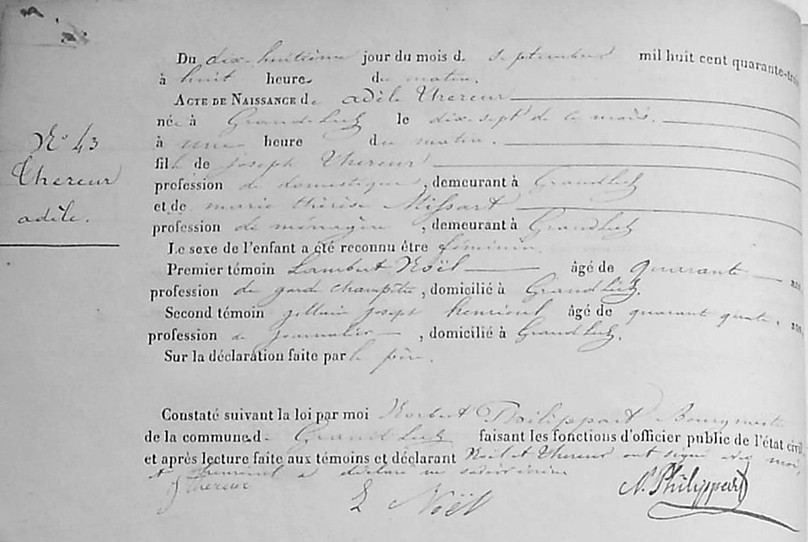 Du dix huitième jour du mois d. septembre mil huit cent quarante-trois
à huit heures du matin.
ACTE DE NAISSANCE de adèle Thereur
née à Grandleez le dix-sept de ce mois.
à une heure du matin.
N° 43
Thereur
adèle.
fille de joseph Thereur
profession de domestique, demeurant à Grandleez
et de marie thérèse Missart
profession de ménagère, demeurant à Grandleez
Le sexe de l'enfant a été reconnu être féminin.
Premier témoin Lambert Noël âgé de quarante ans
profession de garde champêtre, domicilié à Grandleez.
Second témoin joseph henrioul âgé de quarante quatre ans
profession de journalier, domicilié à Grandleez.
Sur la déclaration faite par le père.
Constaté suivant la loi par moi Norbert Philippart Bourgmestre
de la commune de Grand Leez faisant les fonctions d'officier public de l'état civil
et après lecture faite aux témoins et déclarant Noël et Thereur ont signé avec moi,
et henrioul a déclaré ne savoir écrire
J Thereur
L Noël
N. Philippart